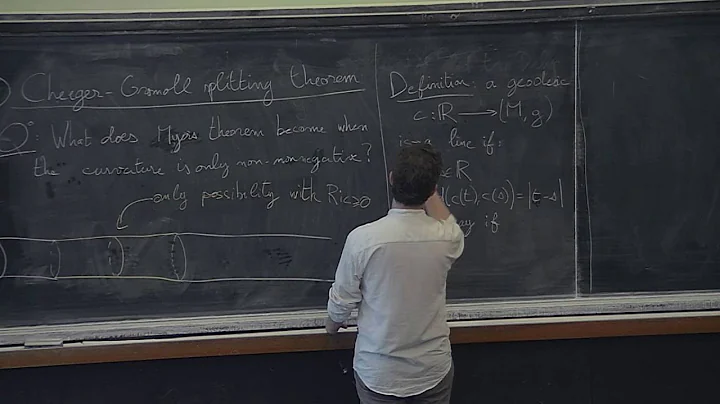 Cheeger-Gromoll splitting theorem
Q°: What does Myers theorem become when
the curvature is only non-nonnegative?
only possibility with Ric≥0
Definition: a geodesic
c: ℝ → (M, g)
is a line if:
ℝ
(c(t), c(s)) = |t-s|
if